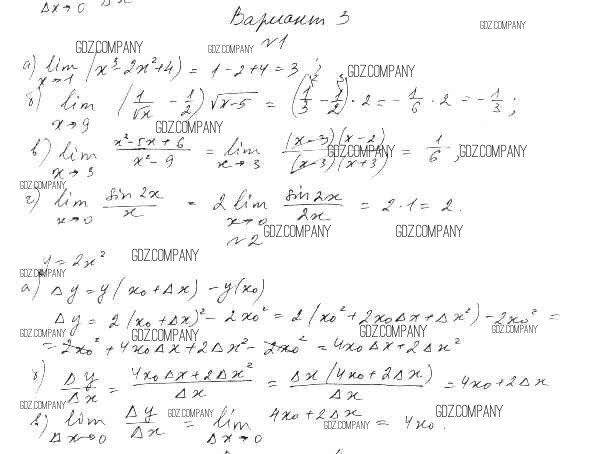 Δx→0 Δx
Вариант 3
GDZ.COMPANY
№1
GDZ.COMPANY GDZ.COMPANY
а) lim x→1 (x³-2x²+4) = 1-2+4=3;
GDZ.COMPANY
б) lim x→9 (1/√x - 1/2) √x-5 = (1/3 - 1/2)·2 = -1/6·2 = -1/3;
GDZ.COMPANY
в) lim x→3 (x²-5x+6)/(x²-9) = lim x→3 ((x-3)(x-2))/((x-3)(x+3)) = 1/6;
GDZ.COMPANY GDZ.COMPANY
GDZ.COMPANY
г) lim x→0 sin2x/x = 2 lim x→0 sin2x/2x = 2·1=2.
№2
GDZ.COMPANY GDZ.COMPANY
y=2x²
GDZ.COMPANY
GDZ.COMPANY
а) Δy=y(x₀+Δx)-y(x₀)
Δy=2(x₀+Δx)²-2x₀²=2(x₀²+2x₀Δx+Δx²)-2x₀²=
GDZ.COMPANY GDZ.COMPANY GDZ.COMPANY GDZ.COMPANY
=2x₀²+4x₀Δx+2Δx²-2x₀²=4x₀Δx+2Δx²
б) Δy/Δx = (4x₀Δx+2Δx²)/Δx = (Δx(4x₀+2Δx))/Δx = 4x₀+2Δx
GDZ.COMPANY GDZ.COMPANY GDZ.COMPANY
в) lim Δx→0 Δy/Δx = lim Δx→0 4x₀+2Δx = 4x₀.
GDZ.COMPANY